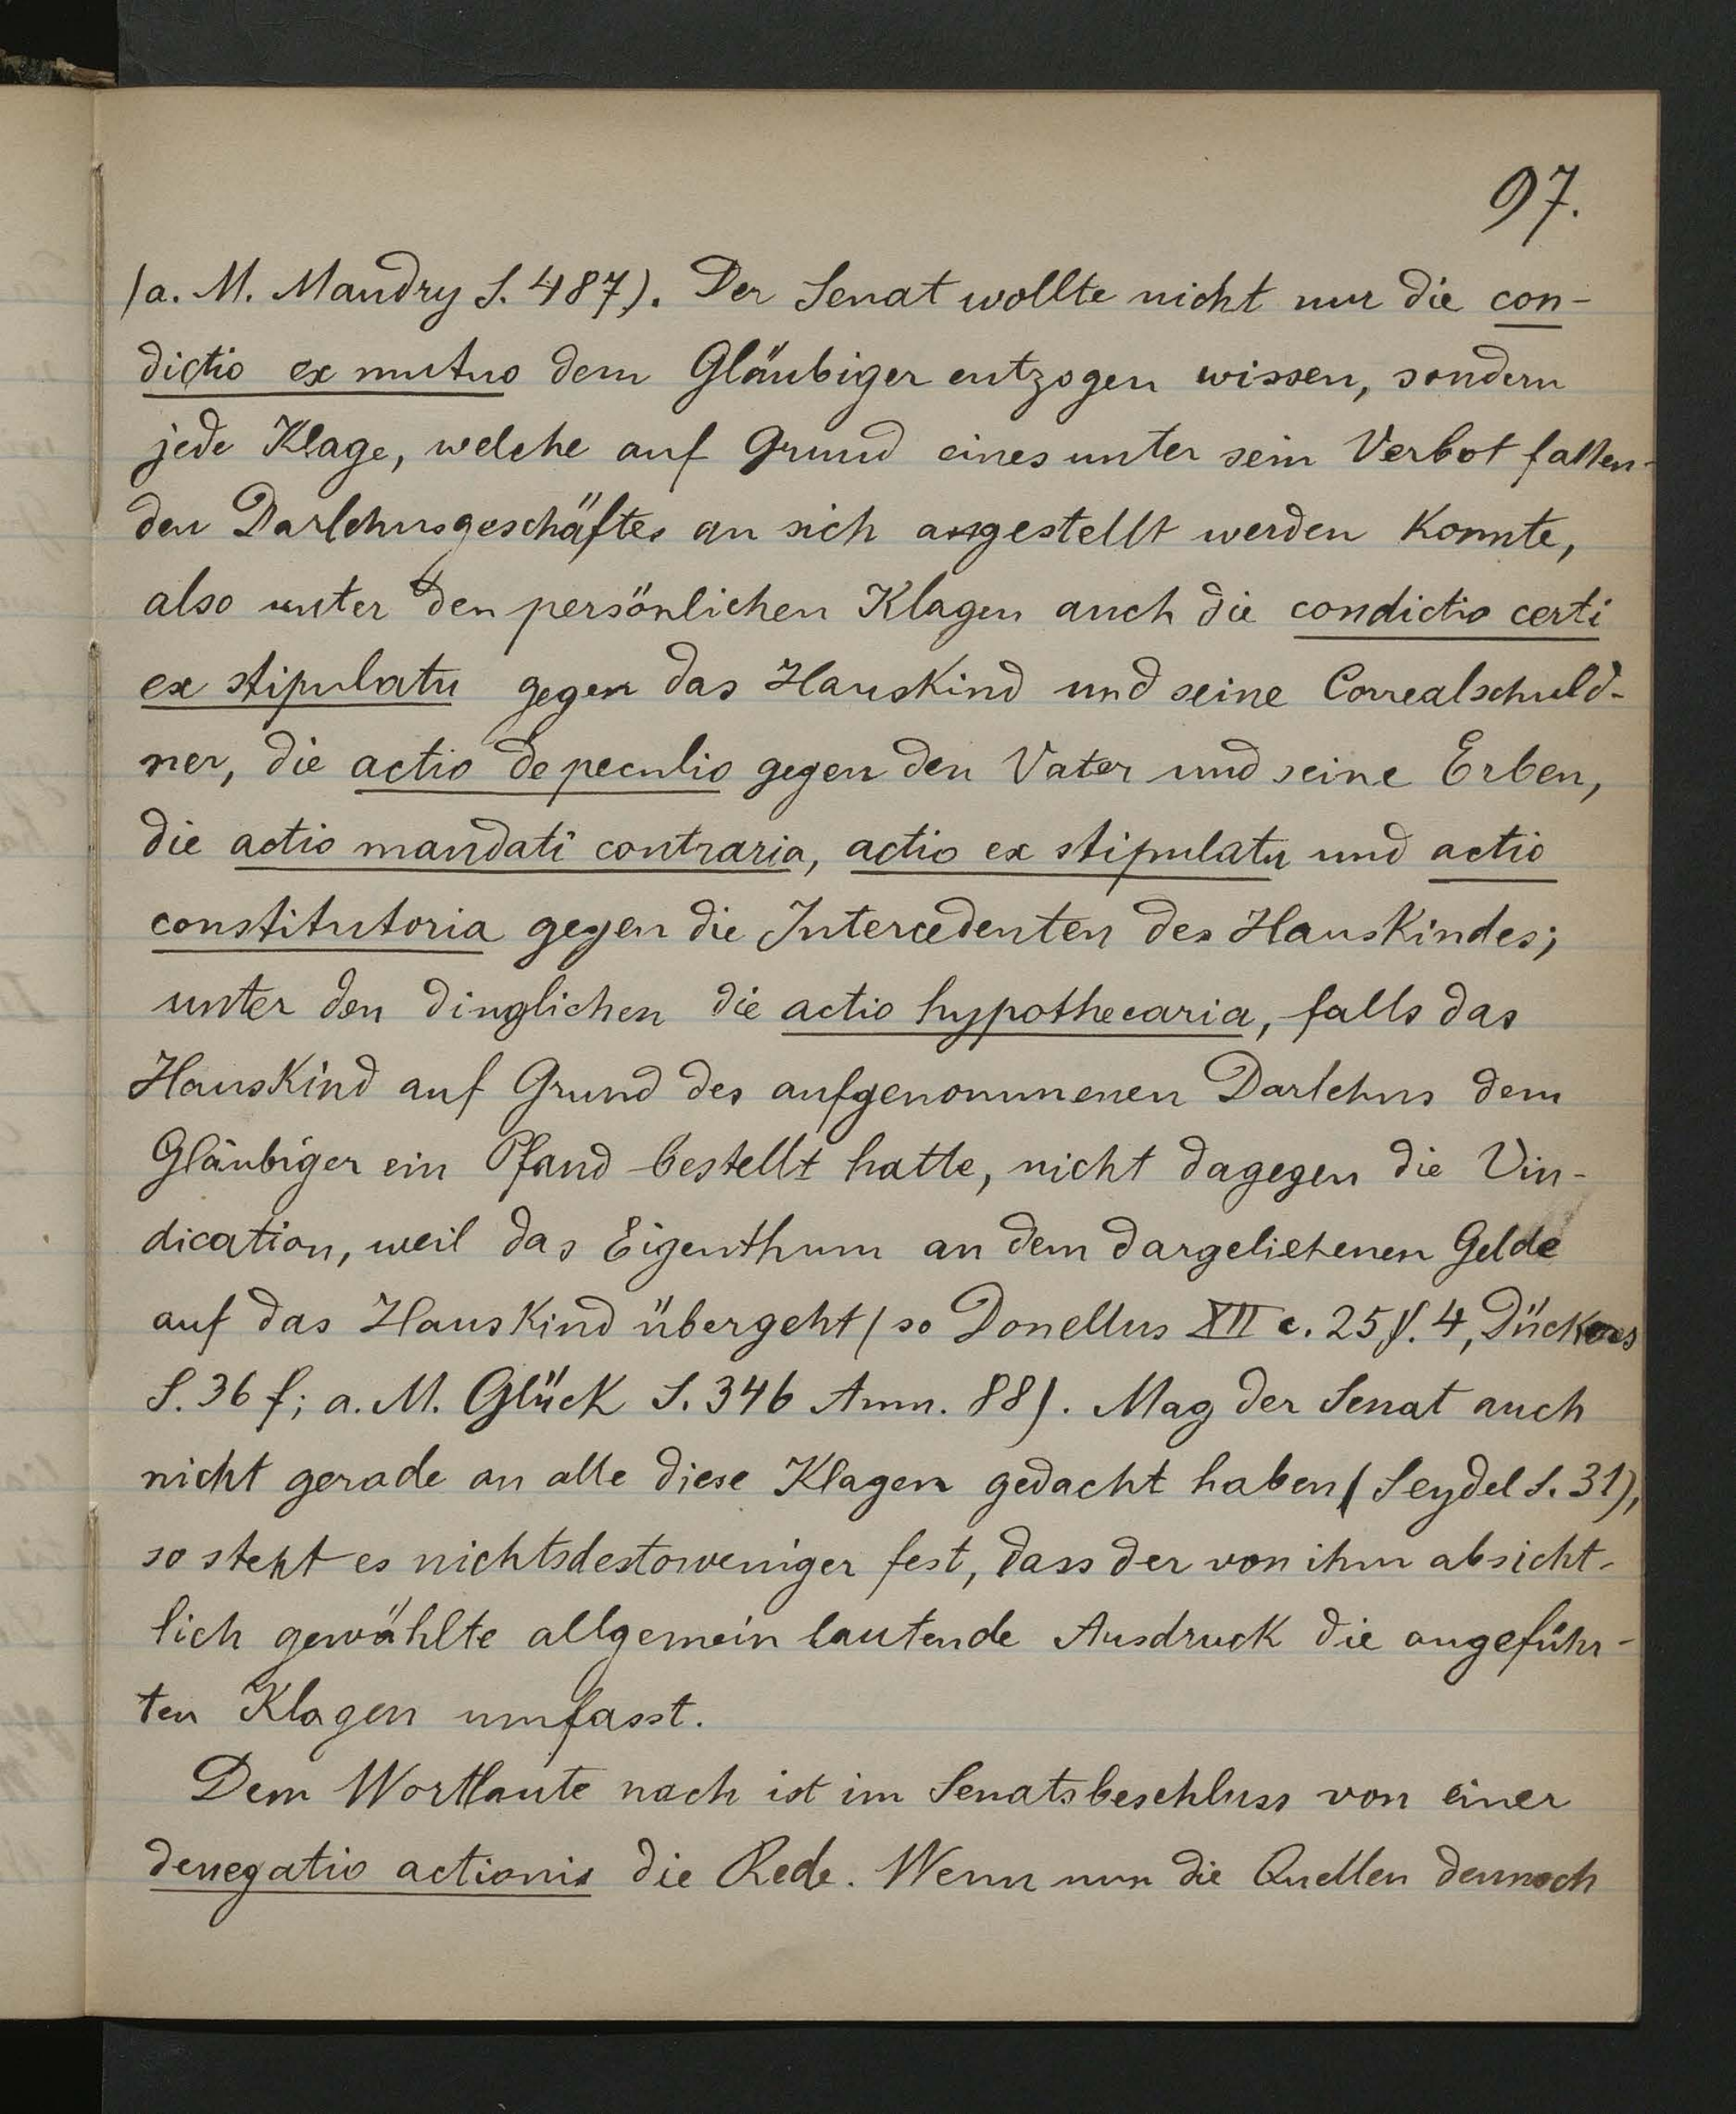 97.
(a. M. Mandry S. 487). Der Senat wollte nicht nur die con-
dictio ex mutuo dem Gläubiger entzogen wissen, sondern
jede Klage, welche auf Grund eines unter sein Verbot fallen-
den Darlehnsgeschäftes an sich angestellt werden konnte,
also unter den persönlichen Klagen auch die condictio certi
ex stipulatu gegen das Hauskind und seine Correalschuld-
ner, die actio de peculio gegen den Vater und seine Erben,
die actio mandati contraria, actio ex stipulatu und actio
constitutoria gegen die Intercedenten des Hauskindes;
unter den dinglichen die actio hypothecaria, falls das
Hauskind auf Grund des aufgenommenen Darlehns dem
Gläubiger ein Pfand bestellt hatte, nicht dagegen die Vin-
dication, weil das Eigenthum an dem dargeliehenen Gelde
auf das Hauskind übergeht (so Donellus XII c. 25 §. 4,
S. 36 f; a. M. Glück S. 346 Anm. 88). Mag der Senat auch
nicht gerade an alle diese Klagen gedacht haben (Seydel S. 31),
so steht es nichtsdestoweniger fest, dass der von ihm absicht-
lich gewählte allgemein lautende Ausdruck die angeführ-
ten Klagen umfasst.
Dem Wortlaute nach ist im Senatsbeschluss von einer
denegatio actionis die Rede. Wenn nun die Quellen dennoch